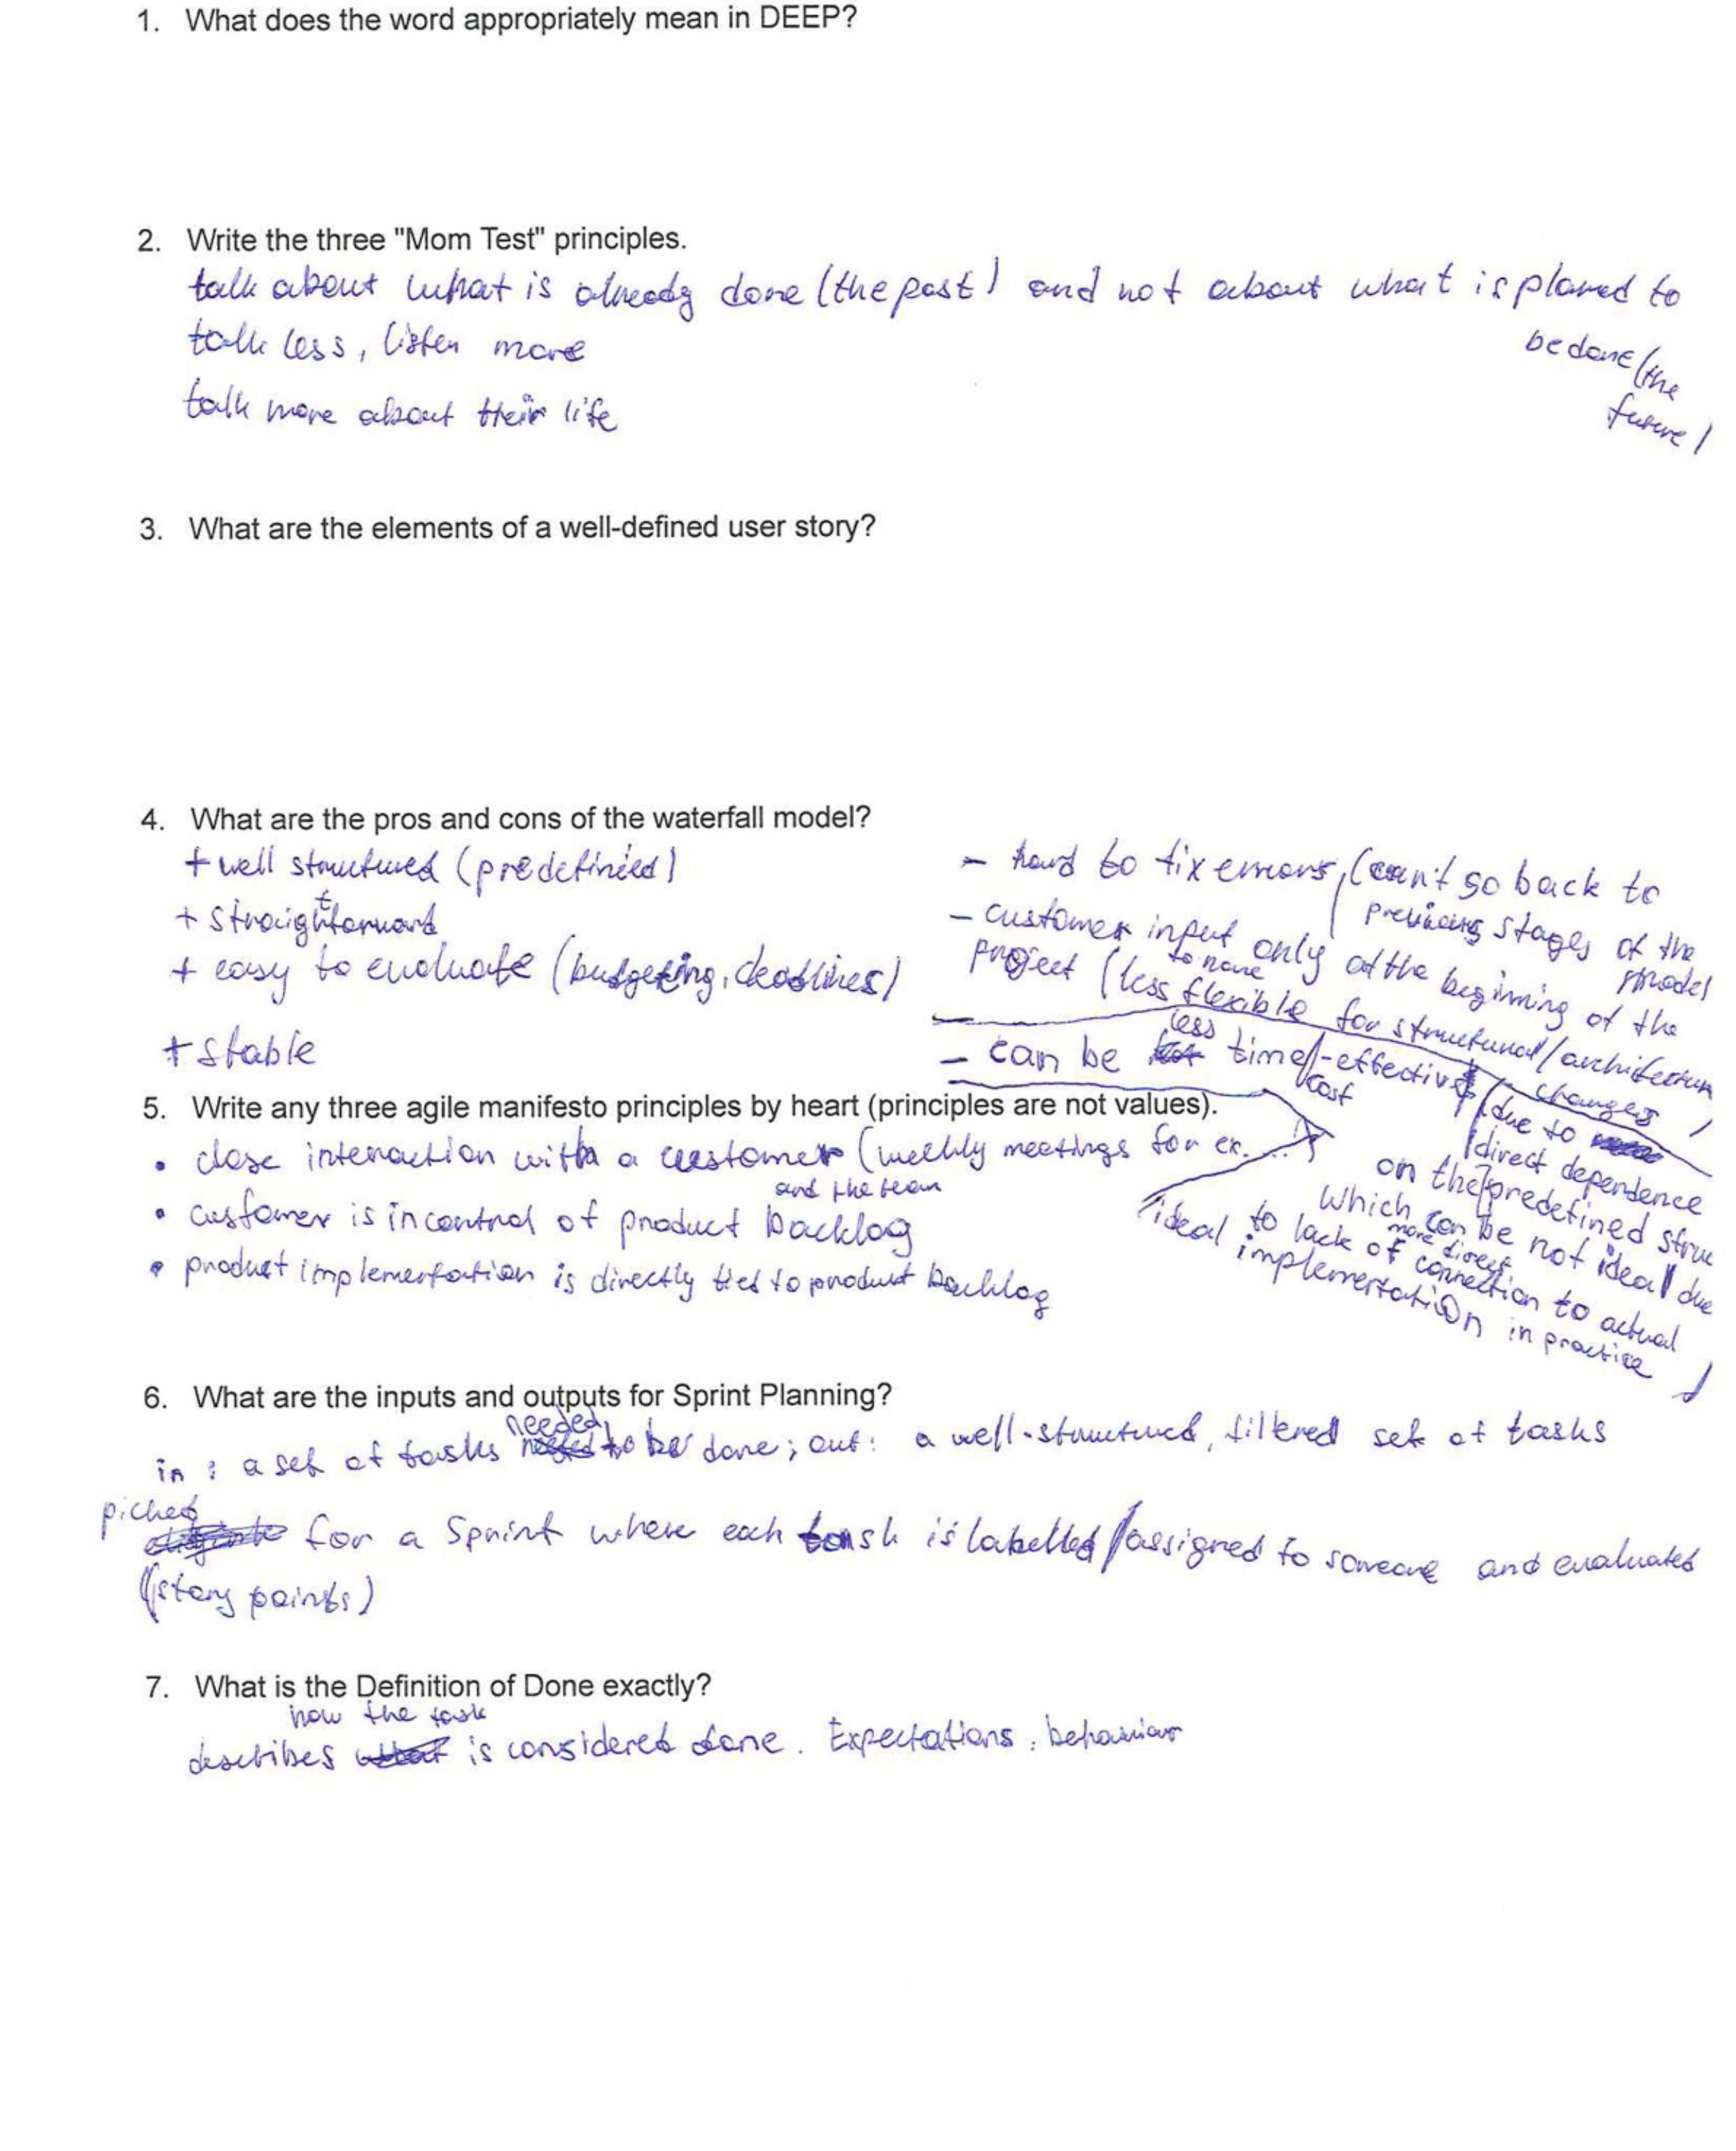 1. What does the word appropriately mean in DEEP?
2. Write the three "Mom Test" principles.
talk about what is already done (the past) and not about what is planed to
be done (the
future)
talk less, listen more
talk more about their life
3. What are the elements of a well-defined user story?
4. What are the pros and cons of the waterfall model?
+ well structured (predefinied)
+ straightforward
+ easy to evaluate (budgeting, deadlines)
+ stable
- hard to fix errors, (can't go back to
previous stages of the
model
- customer input only at the beginning of the
project (less to none flexible for structural/architecture
changes)
- can be less time/cost-effective (due to
direct dependence
on the predefined struc
which can be not ideal due
to lack of more direct connection to actual
implementation in practice)
ideal
5. Write any three agile manifesto principles by heart (principles are not values).
• close interaction with a customer (weekly meetings for ex. ...)
and the team
• customer is in control of product backlog
• product implementation is directly tied to product backlog
6. What are the inputs and outputs for Sprint Planning?
in : a set of tasks needed to be done; out: a well-structured, filtered set of tasks
picked for a Sprint where each task is labelled/assigned to someone and evaluated
(story points)
7. What is the Definition of Done exactly?
how the task
describes is considered done. Expectations, behaviour